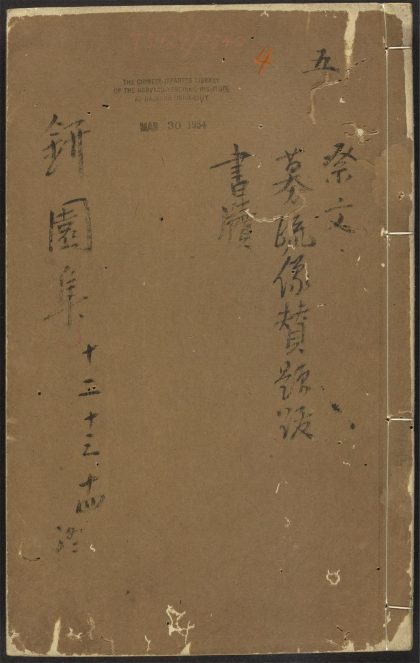 五
4
THE CHINESE-JAPANESE LIBRARY
OF THE HARVARD-YENCHING INSTITUTE
AT HARVARD UNIVERSITY
MAR 30 1954
祭文
募疏像贊題跋
書牘
鈃園集 十二十三十四